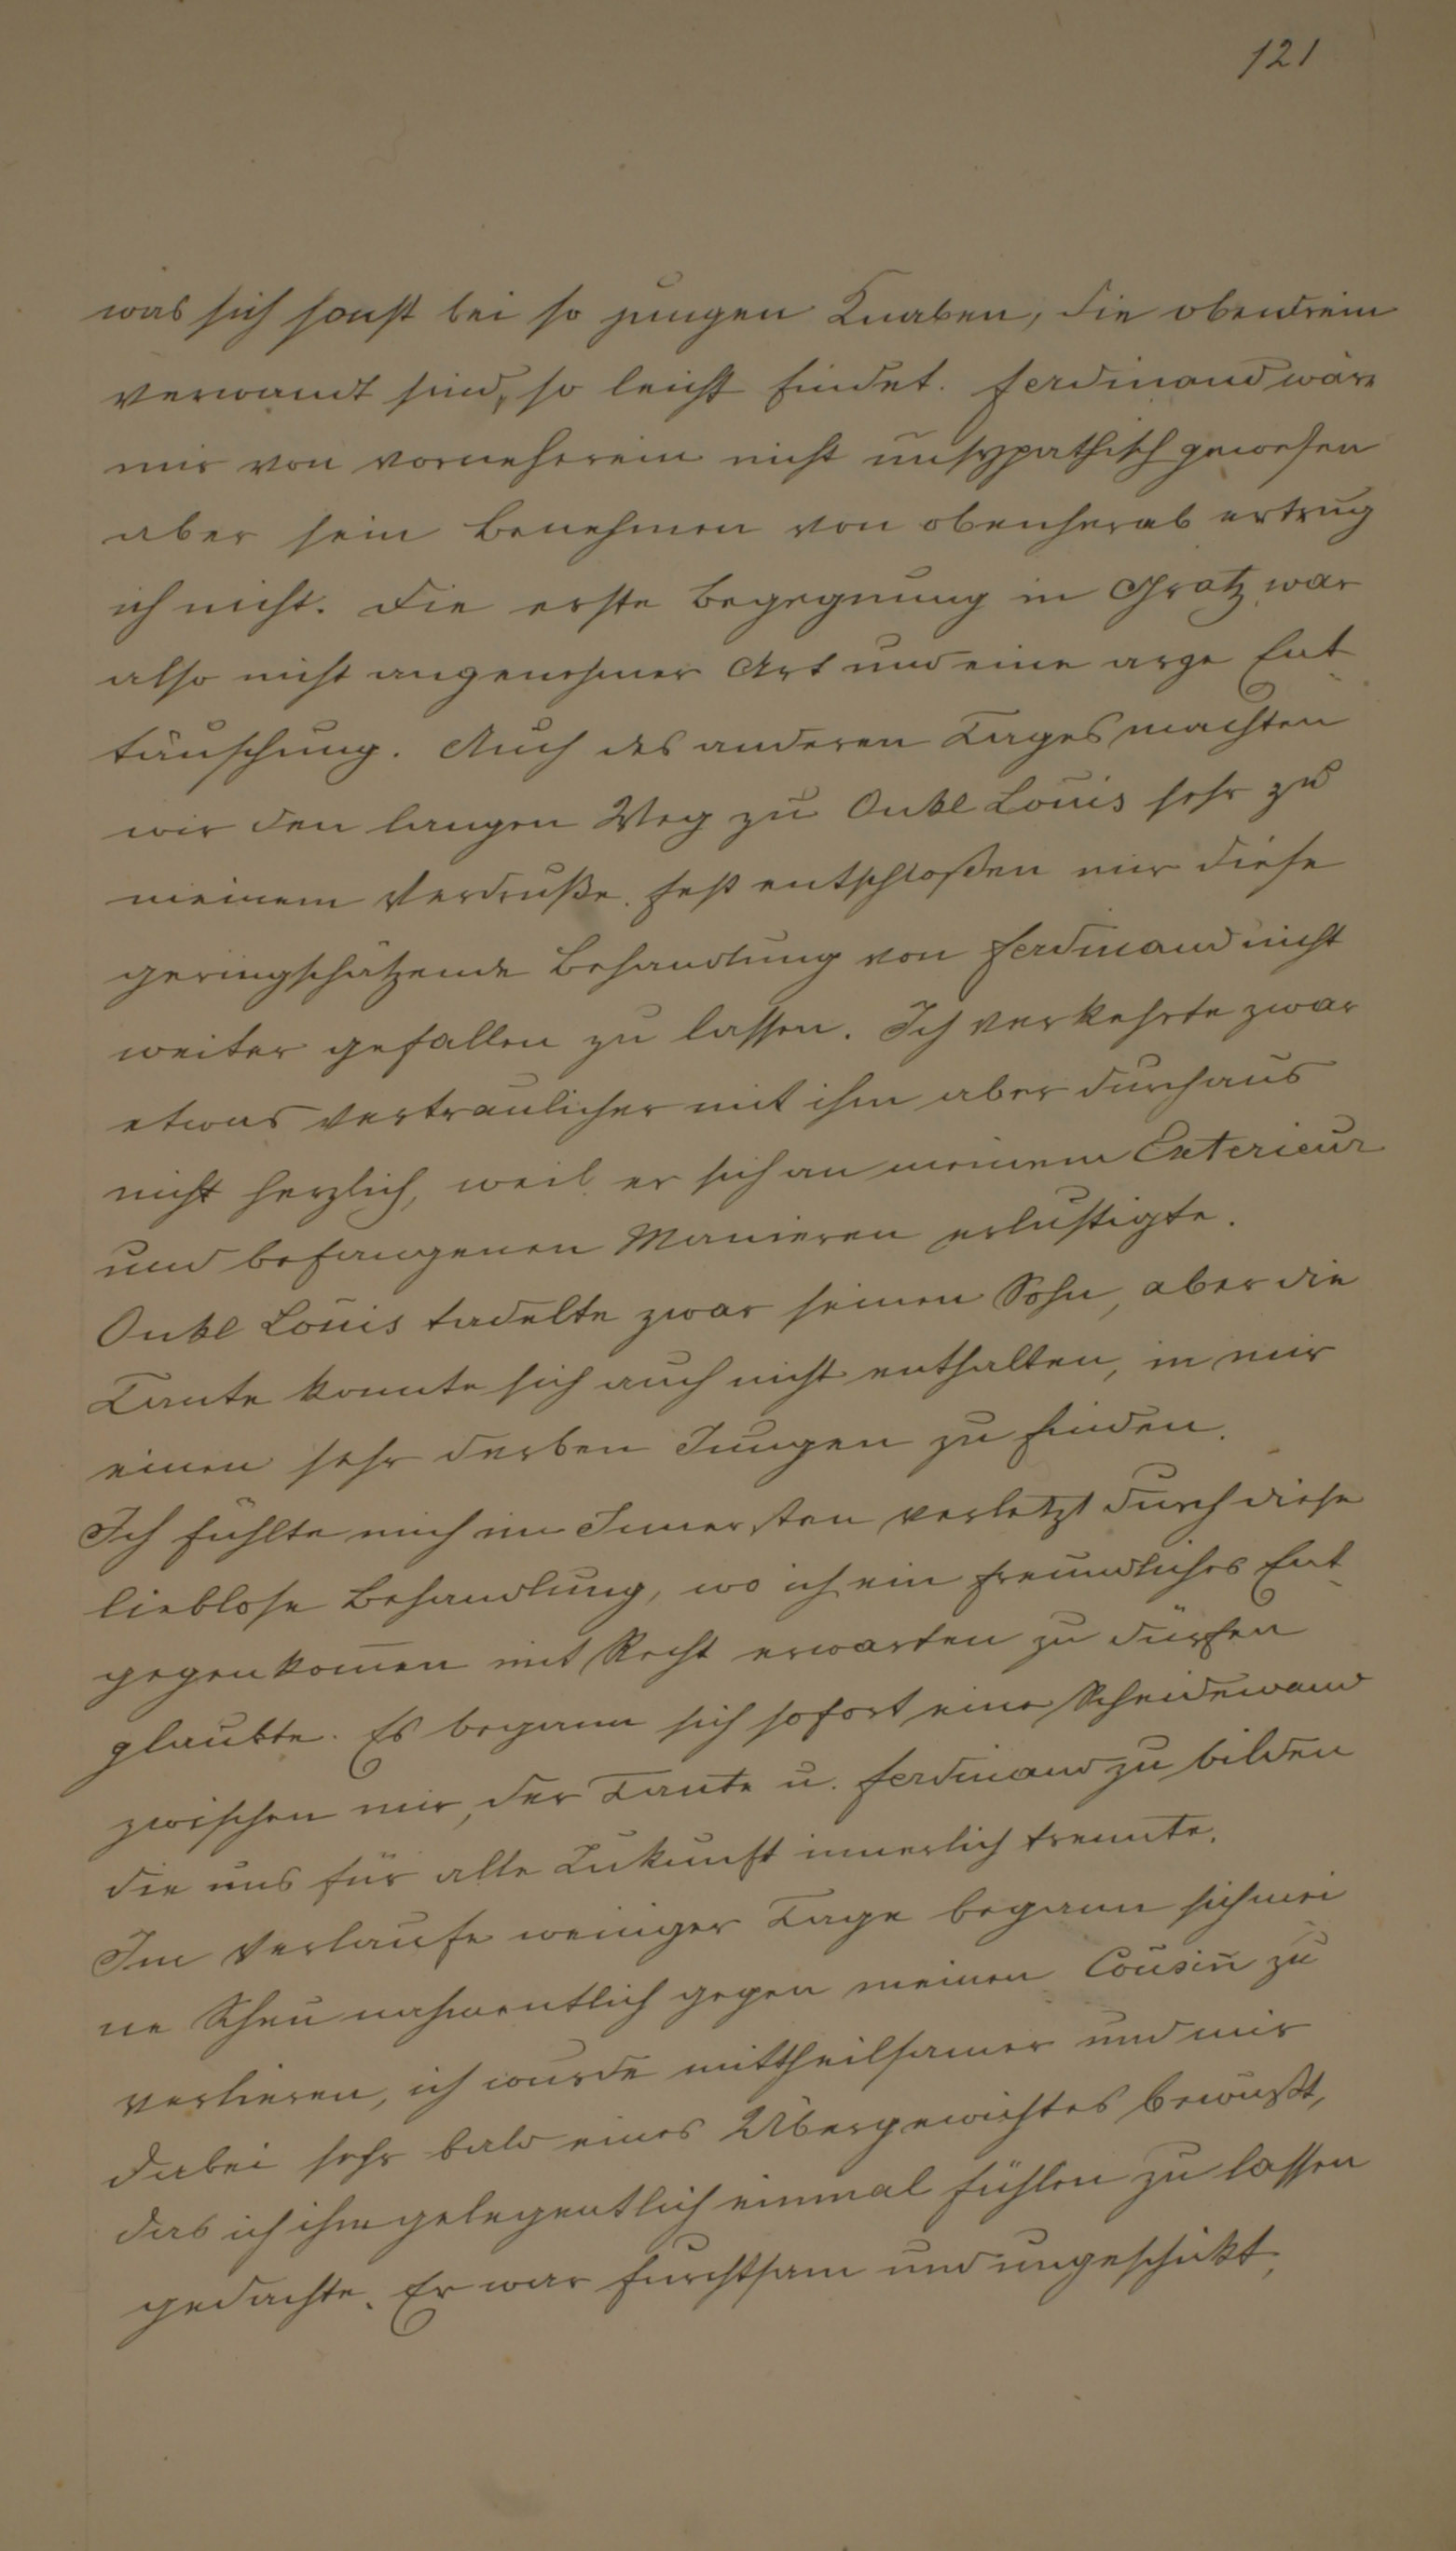 121
was sich sonst bei so jungen Knaben, die obendrein
verwandt sind, so leicht findet. Ferdinand wäre
mir von vorneherein nicht unsypathisch gewesen
aber sein Benehmen von obenherab ertrug
ich nicht. Die erste Begegnung in Gratz war
also nicht angenehmer Art und eine arge Ent
täuschung. Auch des anderen Tages machten
wir den langen Weg zu Onkl Louis sehr zu
meinem Verdruße. fest entschloßen mir diese
geringschätzende Behandlung von Ferdinand nicht
weiter gefallen zu lassen. Ich verkehrte zwar
etwas vertraulicher mit ihm aber durchaus
nicht herzlich, weil er sich an meinem Exterieur
und befangenen Manieren erlustigte.
Onkl Louis tadelte zwar seinen Sohn, aber die
Tante konnte sich auch nicht enthalten, in mir
einen sehr derben Jungen zu finden.
Ich fühlte mich im Innersten verletzt durch diese
lieblose Behandlung, wo ich ein freundliches Ent
gegenkom̅en mit Recht erwarten zu dürfen
glaubte. Es begann sich sofort eine Scheidewand
zwischen mir, der Tante u. Ferdinand zu bilden
die uns für alle Zukunft innerlich trennte.
Im Verlaufe weniger Tage begann sich mei
ne Scheu nahmentlich gegen meinen Cousin zu
verlieren, ich wurde mittheilsamer und mir
dabei sehr bald eines Übergewichtes bewußt,
das ich ihm gelegentlich einmal fühlen zu lassen
gedachte. Er war furchtsam und ungeschikt,